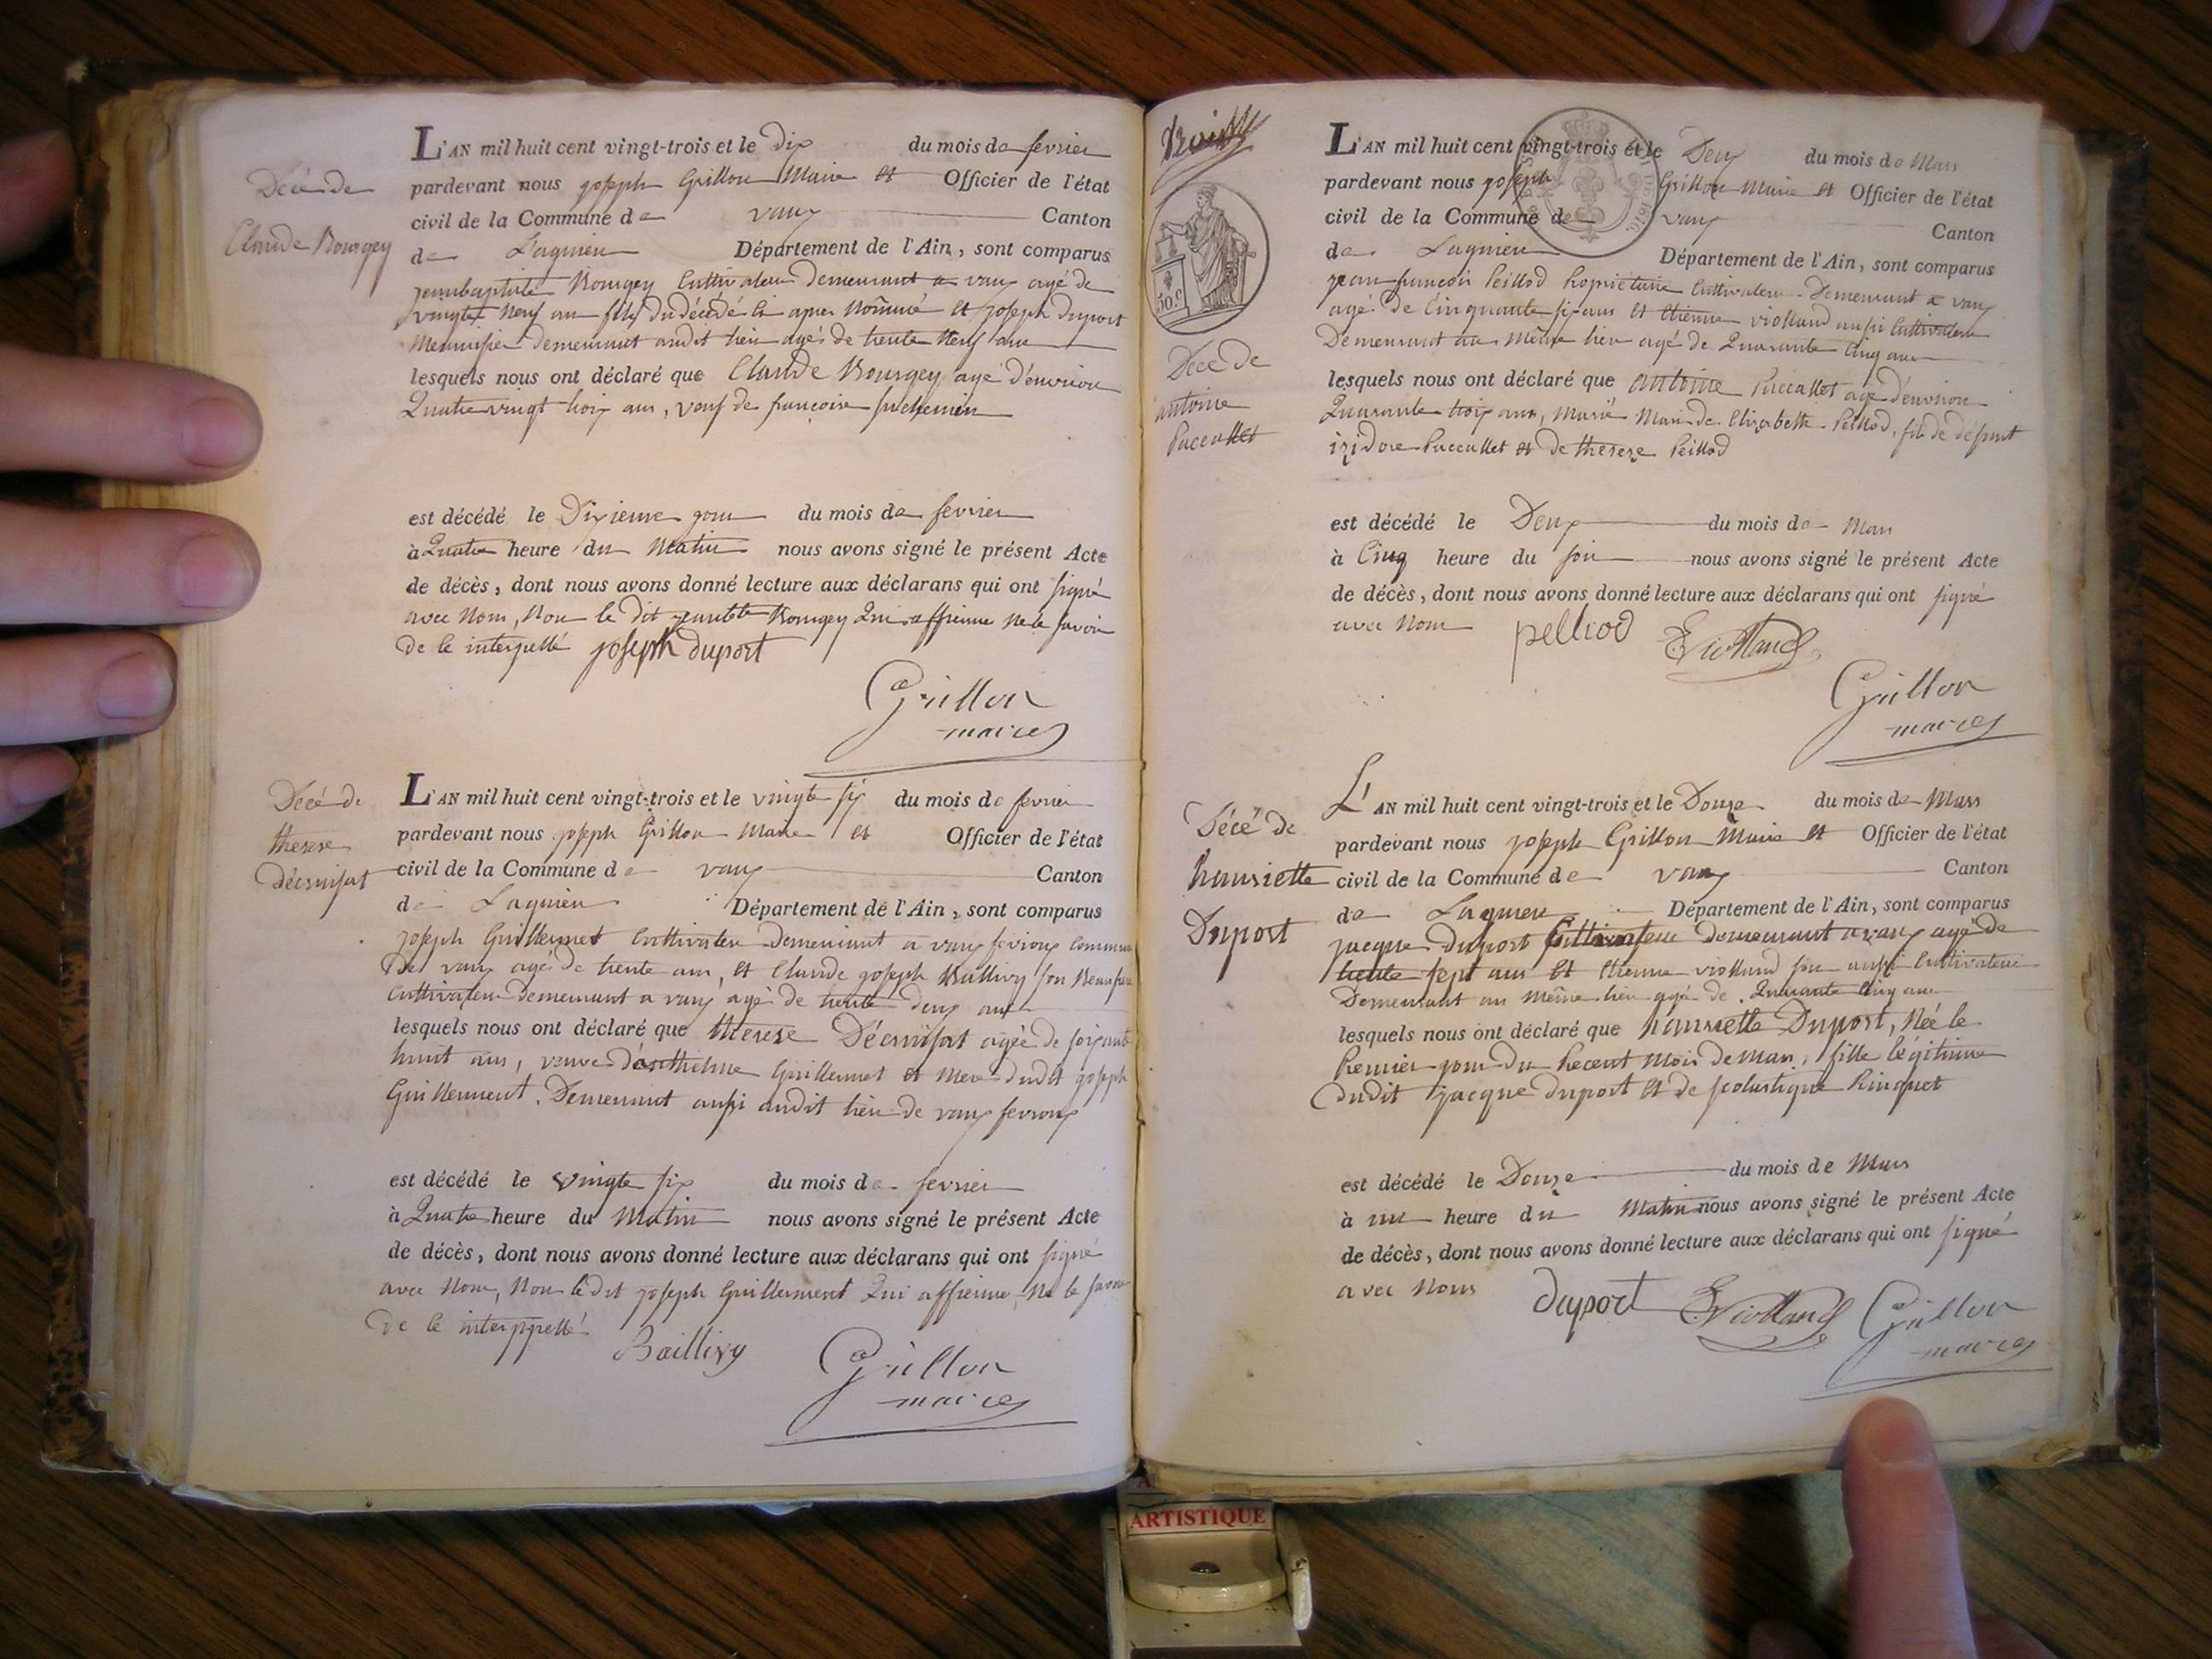 Décé de
Claude Bourgey
L'AN mil huit cent vingt-trois et le dix du mois de fevrier
pardevant nous joseph Grillon Maire et Officier de l'état
civil de la Commune de vaux Canton
de Lagnieu Département de l'Ain, sont comparus
jeanbaptiste Bourgey Cultivateur demeurant a vaux agé de
vingt Neuf ans fils du décédé Ci apres Nommé et joseph duport
Menuisier demeurant audit lieu agés de trente Neuf ans
lesquels nous ont déclaré que Claude Bourgey agé d'environ
Quatre vingt trois ans, veuf de françoise
est décédé le Dixieme jour du mois de fevrier
à Quatre heure du Matin nous avons signé le présent Acte
de décès, dont nous avons donné lecture aux déclarans qui ont signé
avec Nous, Non le dit jeanbte Bourgey Qui affirme Ne le savoir
de ce interpellé joseph duport
Grillon
maire
Décé de
therese
L'AN mil huit cent vingt-trois et le vingte six du mois de fevrier
pardevant nous joseph Grillon Maire et Officier de l'état
civil de la Commune de vaux Canton
de Lagnieu Département de l'Ain, sont comparus
joseph Guillermet Cultivateur Demeurant a vaux fevroux Commune
De vaux agé de trente ans, et Claude joseph Baillivy son Beaufrere
Cultivateur demeurant a vaux agé de trente deux ans
lesquels nous ont déclaré que therese agée de soixante
huit ans, veuve d'anthelme Guillermet et Mere dudit joseph
Guillermet. Demeurant aussi audit lieu de vaux fevroux
est décédé le vingte six du mois de fevrier
à Quatre heure du Matin nous avons signé le présent Acte
de décès, dont nous avons donné lecture aux déclarans qui ont signé
avec Nous, Non le dit joseph Guillermet Qui affirme Ne le savoir
de ce interppellé
Baillivy
Grillon
maire
50.c
Décé de
antoine
Puccallet
L'AN mil huit cent vingt-trois et le Deux du mois de Mars
pardevant nous joseph Grillon Maire et Officier de l'état
civil de la Commune de vaux Canton
de Lagnieu Département de l'Ain, sont comparus
jean françois Peillod Propriétaire Cultivateur Demeurant a vaux
agé de Cinquante six ans et Etienne violland aussi Cultivateur
Demeurant au même lieu agé de Quarante Cinq ans
lesquels nous ont déclaré que antoine Puccallet agé d'environ
Quarante trois ans, Marié Mari de Elizabette Peillod, fils de défunt
izidore Puccallet et de therese Peillod
est décédé le Deux du mois de Mars
à Cinq heure du soir nous avons signé le présent Acte
de décès, dont nous avons donné lecture aux déclarans qui ont signé
avec Nous pelliod E. violland
Grillon
maire
Décé de
hanriette
Duport
L'AN mil huit cent vingt-trois et le Douze du mois de Mars
pardevant nous joseph Grillon Maire et Officier de l'état
civil de la Commune de vaux Canton
de Lagnieu Département de l'Ain, sont comparus
jacque duport Cultivateur demeurant a vaux agé de
trente sept ans et Etienne violland aussi Cultivateur
Demeurant au même lieu agé de Quarante Cinq ans
lesquels nous ont déclaré que hanriette Duport, Née le
Premier jour du Present Mois de Mars, fille légitime
dudit jacque duport et de scolastique
est décédé le Douze du mois de Mars
à un heure du Matin nous avons signé le présent Acte
de décès, dont nous avons donné lecture aux déclarans qui ont signé
avec Nous duport E. violland Grillon
maire
ARTISTIQUE